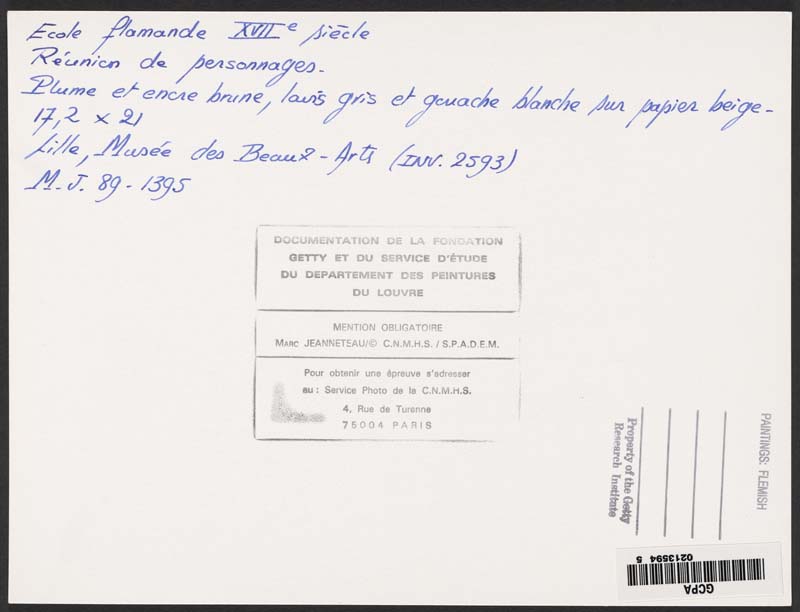 Ecole flamande XVIIe siècle
Réunion de personnages.
Plume et encre brune, lavis gris et gouache blanche sur papier beige.
17,2 x 21
Lille, Musée des Beaux-Arts (INV. 2593)
M.J. 89-1395
DOCUMENTATION DE LA FONDATION
GETTY ET DU SERVICE D'ÉTUDE
DU DEPARTEMENT DES PEINTURES
DU LOUVRE
MENTION OBLIGATOIRE
MARC JEANNETEAU/© C.N.M.H.S. / S.P.A.D.E.M.
Pour obtenir une épreuve s'adresser
au : Service Photo de la C.N.M.H.S.
4, Rue de Turenne
75004 PARIS
PAINTINGS: FLEMISH
Property of the Getty
Research Institute
0213594 5
GCPA